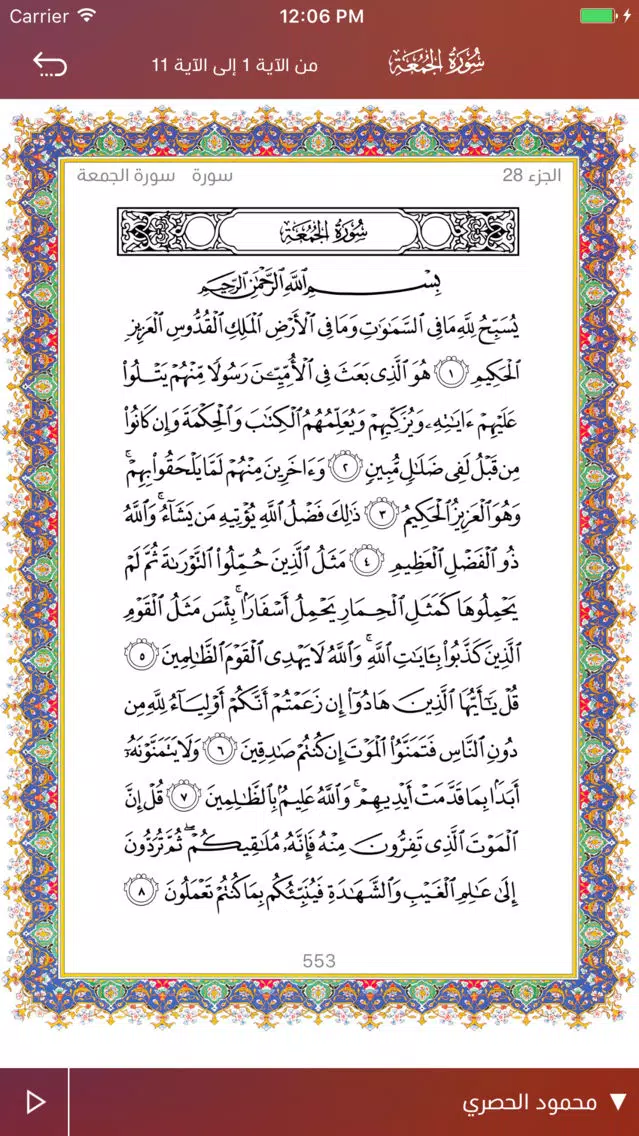 Carrier 12:06 PM
سُورَةُ الجُمُعَةِ من الآية 1 إلى الآية 11
الجزء 28 سورة سورة الجمعة
سُورَةُ الجُمُعَةِ
بِسْمِ اللَّهِ الرَّحْمَٰنِ الرَّحِيمِ
يُسَبِّحُ لِلَّهِ مَا فِي السَّمَٰوَٰتِ وَمَا فِي الْأَرْضِ الْمَلِكِ الْقُدُّوسِ الْعَزِيزِ
الْحَكِيمِ ١ هُوَ الَّذِي بَعَثَ فِي الْأُمِّيِّـۧنَ رَسُولًا مِّنْهُمْ يَتْلُوا۟
عَلَيْهِمْ ءَايَٰتِهِۦ وَيُزَكِّيهِمْ وَيُعَلِّمُهُمُ الْكِتَٰبَ وَالْحِكْمَةَ وَإِن كَانُوا۟
مِن قَبْلُ لَفِي ضَلَٰلٍ مُّبِينٍ ٢ وَءَاخَرِينَ مِنْهُمْ لَمَّا يَلْحَقُوا۟ بِهِمْ ۚ
وَهُوَ الْعَزِيزُ الْحَكِيمُ ٣ ذَٰلِكَ فَضْلُ اللَّهِ يُؤْتِيهِ مَن يَشَآءُ ۚ وَاللَّهُ
ذُو الْفَضْلِ الْعَظِيمِ ٤ مَثَلُ الَّذِينَ حُمِّلُوا۟ التَّوْرَىٰةَ ثُمَّ لَمْ
يَحْمِلُوهَا كَمَثَلِ الْحِمَارِ يَحْمِلُ أَسْفَارًۢا ۚ بِئْسَ مَثَلُ الْقَوْمِ
الَّذِينَ كَذَّبُوا۟ بِـَٔايَٰتِ اللَّهِ ۚ وَاللَّهُ لَا يَهْدِي الْقَوْمَ الظَّٰلِمِينَ ٥
قُلْ يَٰٓأَيُّهَا الَّذِينَ هَادُوٓا۟ إِن زَعَمْتُمْ أَنَّكُمْ أَوْلِيَآءُ لِلَّهِ مِن
دُونِ النَّاسِ فَتَمَنَّوُا۟ الْمَوْتَ إِن كُنتُمْ صَٰدِقِينَ ٦ وَلَا يَتَمَنَّوْنَهُۥٓ
أَبَدًۢا بِمَا قَدَّمَتْ أَيْدِيهِمْ ۚ وَاللَّهُ عَلِيمٌۢ بِالظَّٰلِمِينَ ٧ قُلْ إِنَّ
الْمَوْتَ الَّذِي تَفِرُّونَ مِنْهُ فَإِنَّهُۥ مُلَٰقِيكُمْ ۖ ثُمَّ تُرَدُّونَ
إِلَىٰ عَٰلِمِ الْغَيْبِ وَالشَّهَٰدَةِ فَيُنَبِّئُكُم بِمَا كُنتُمْ تَعْمَلُونَ ٨
553
محمود الحصري